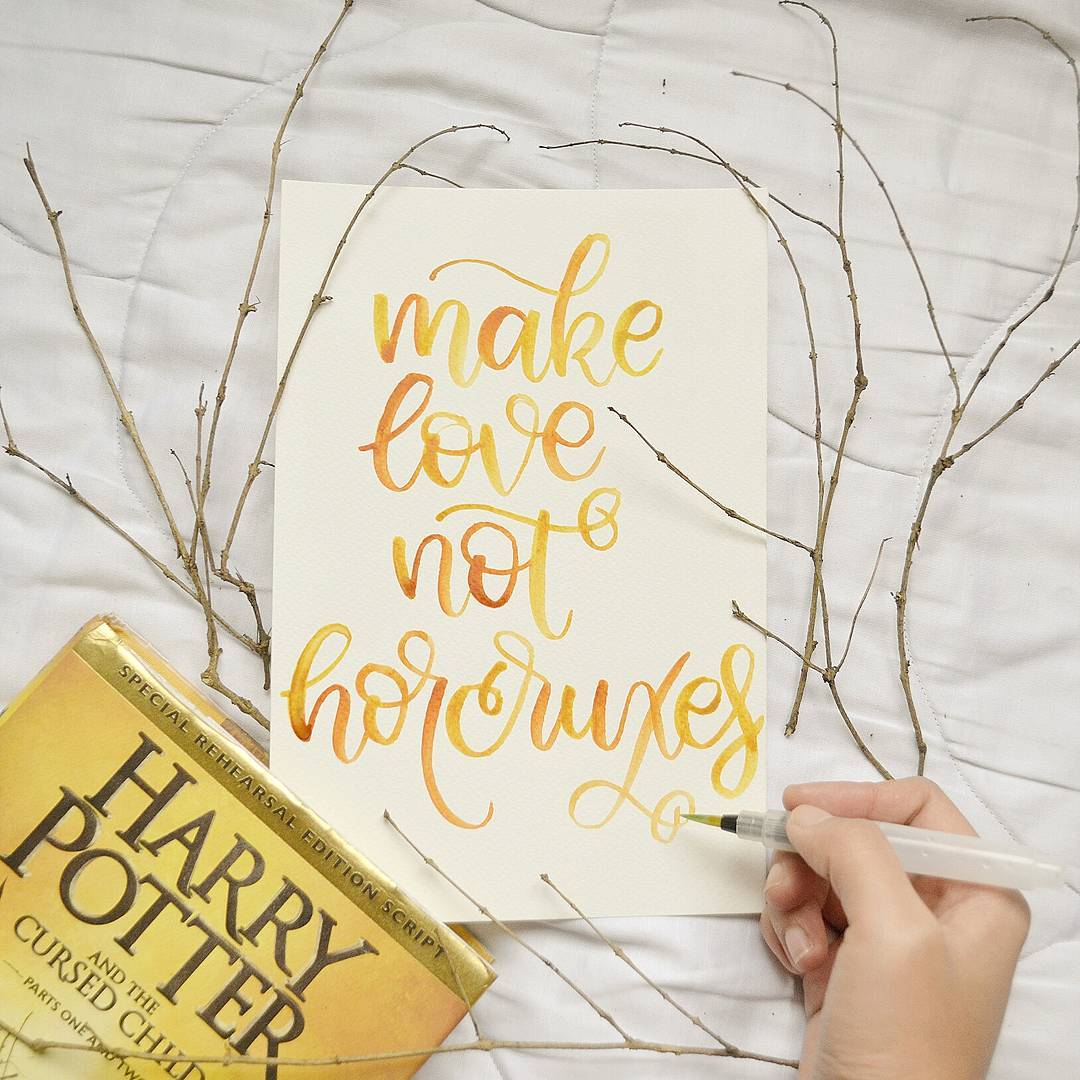 make
love
not
horcruxes
SPECIAL REHEARSAL EDITION SCRIPT
HARRY
POTTER
AND THE
CURSED CHILD
PARTS ONE AND TWO